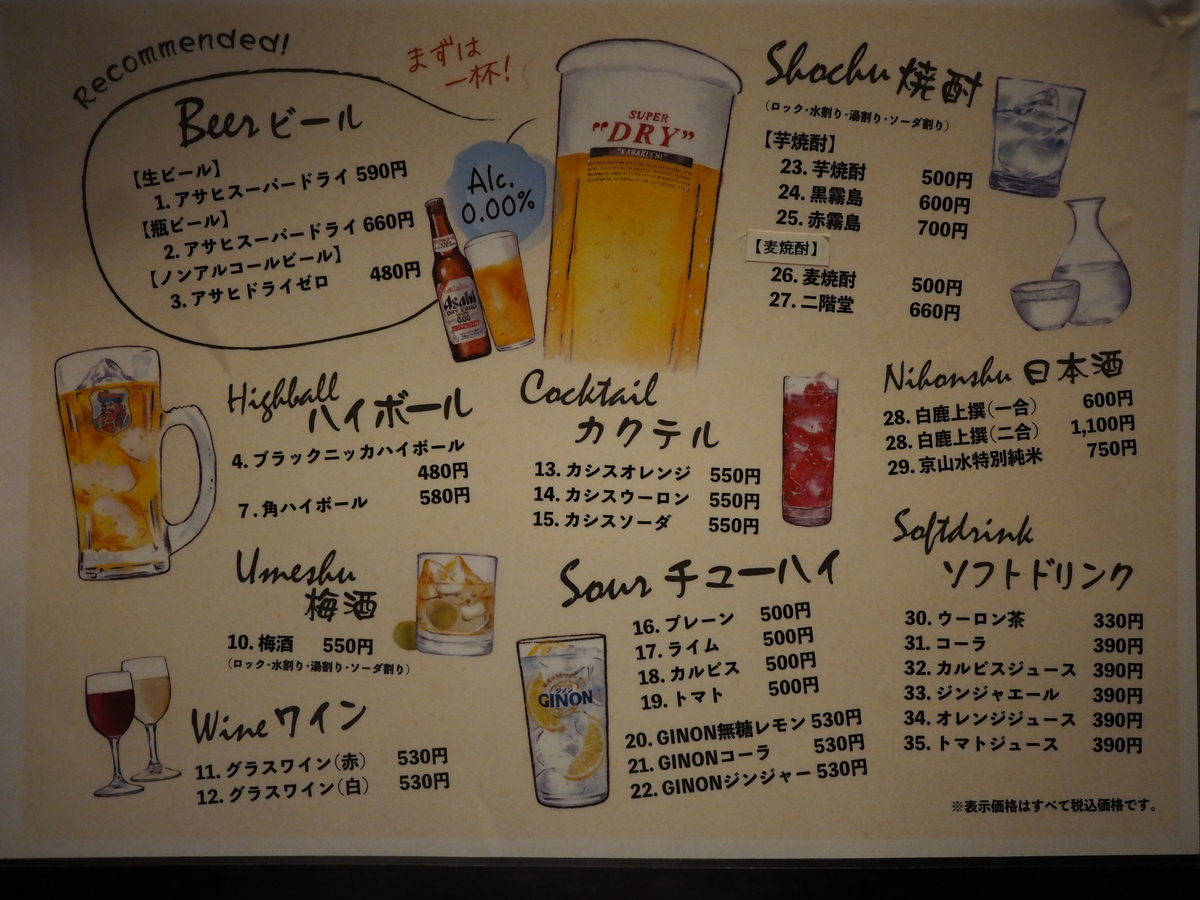 Recommended!
まずは
一杯!
Beer ビール
【生ビール】
1. アサヒスーパードライ 590円
【瓶ビール】
2. アサヒスーパードライ 660円
【ノンアルコールビール】
3. アサヒドライゼロ 480円
Alc.
0.00%
Asahi
DRY ZERO
0.00
SUPER
"DRY"
"KARAKUCHI"
Shochu 焼酎
(ロック・水割り・湯割り・ソーダ割り)
【芋焼酎】
23. 芋焼酎 500円
24. 黒霧島 600円
25. 赤霧島 700円
【麦焼酎】
26. 麦焼酎 500円
27. 二階堂 660円
Highball
ハイボール
4. ブラックニッカハイボール
480円
7. 角ハイボール 580円
Cocktail
カクテル
13. カシスオレンジ 550円
14. カシスウーロン 550円
15. カシスソーダ 550円
Nihonshu 日本酒
28. 白鹿上撰(一合) 600円
28. 白鹿上撰(二合) 1,100円
29. 京山水特別純米 750円
Umeshu
梅酒
10. 梅酒 550円
(ロック・水割り・湯割り・ソーダ割り)
Wine ワイン
11. グラスワイン(赤) 530円
12. グラスワイン(白) 530円
Sour チューハイ
16. プレーン 500円
17. ライム 500円
18. カルピス 500円
19. トマト 500円
20. GINON無糖レモン 530円
21. GINONコーラ 530円
22. GINONジンジャー 530円
GINON
Softdrink
ソフトドリンク
30. ウーロン茶 330円
31. コーラ 390円
32. カルピスジュース 390円
33. ジンジャエール 390円
34. オレンジジュース 390円
35. トマトジュース 390円
※表示価格はすべて税込価格です。